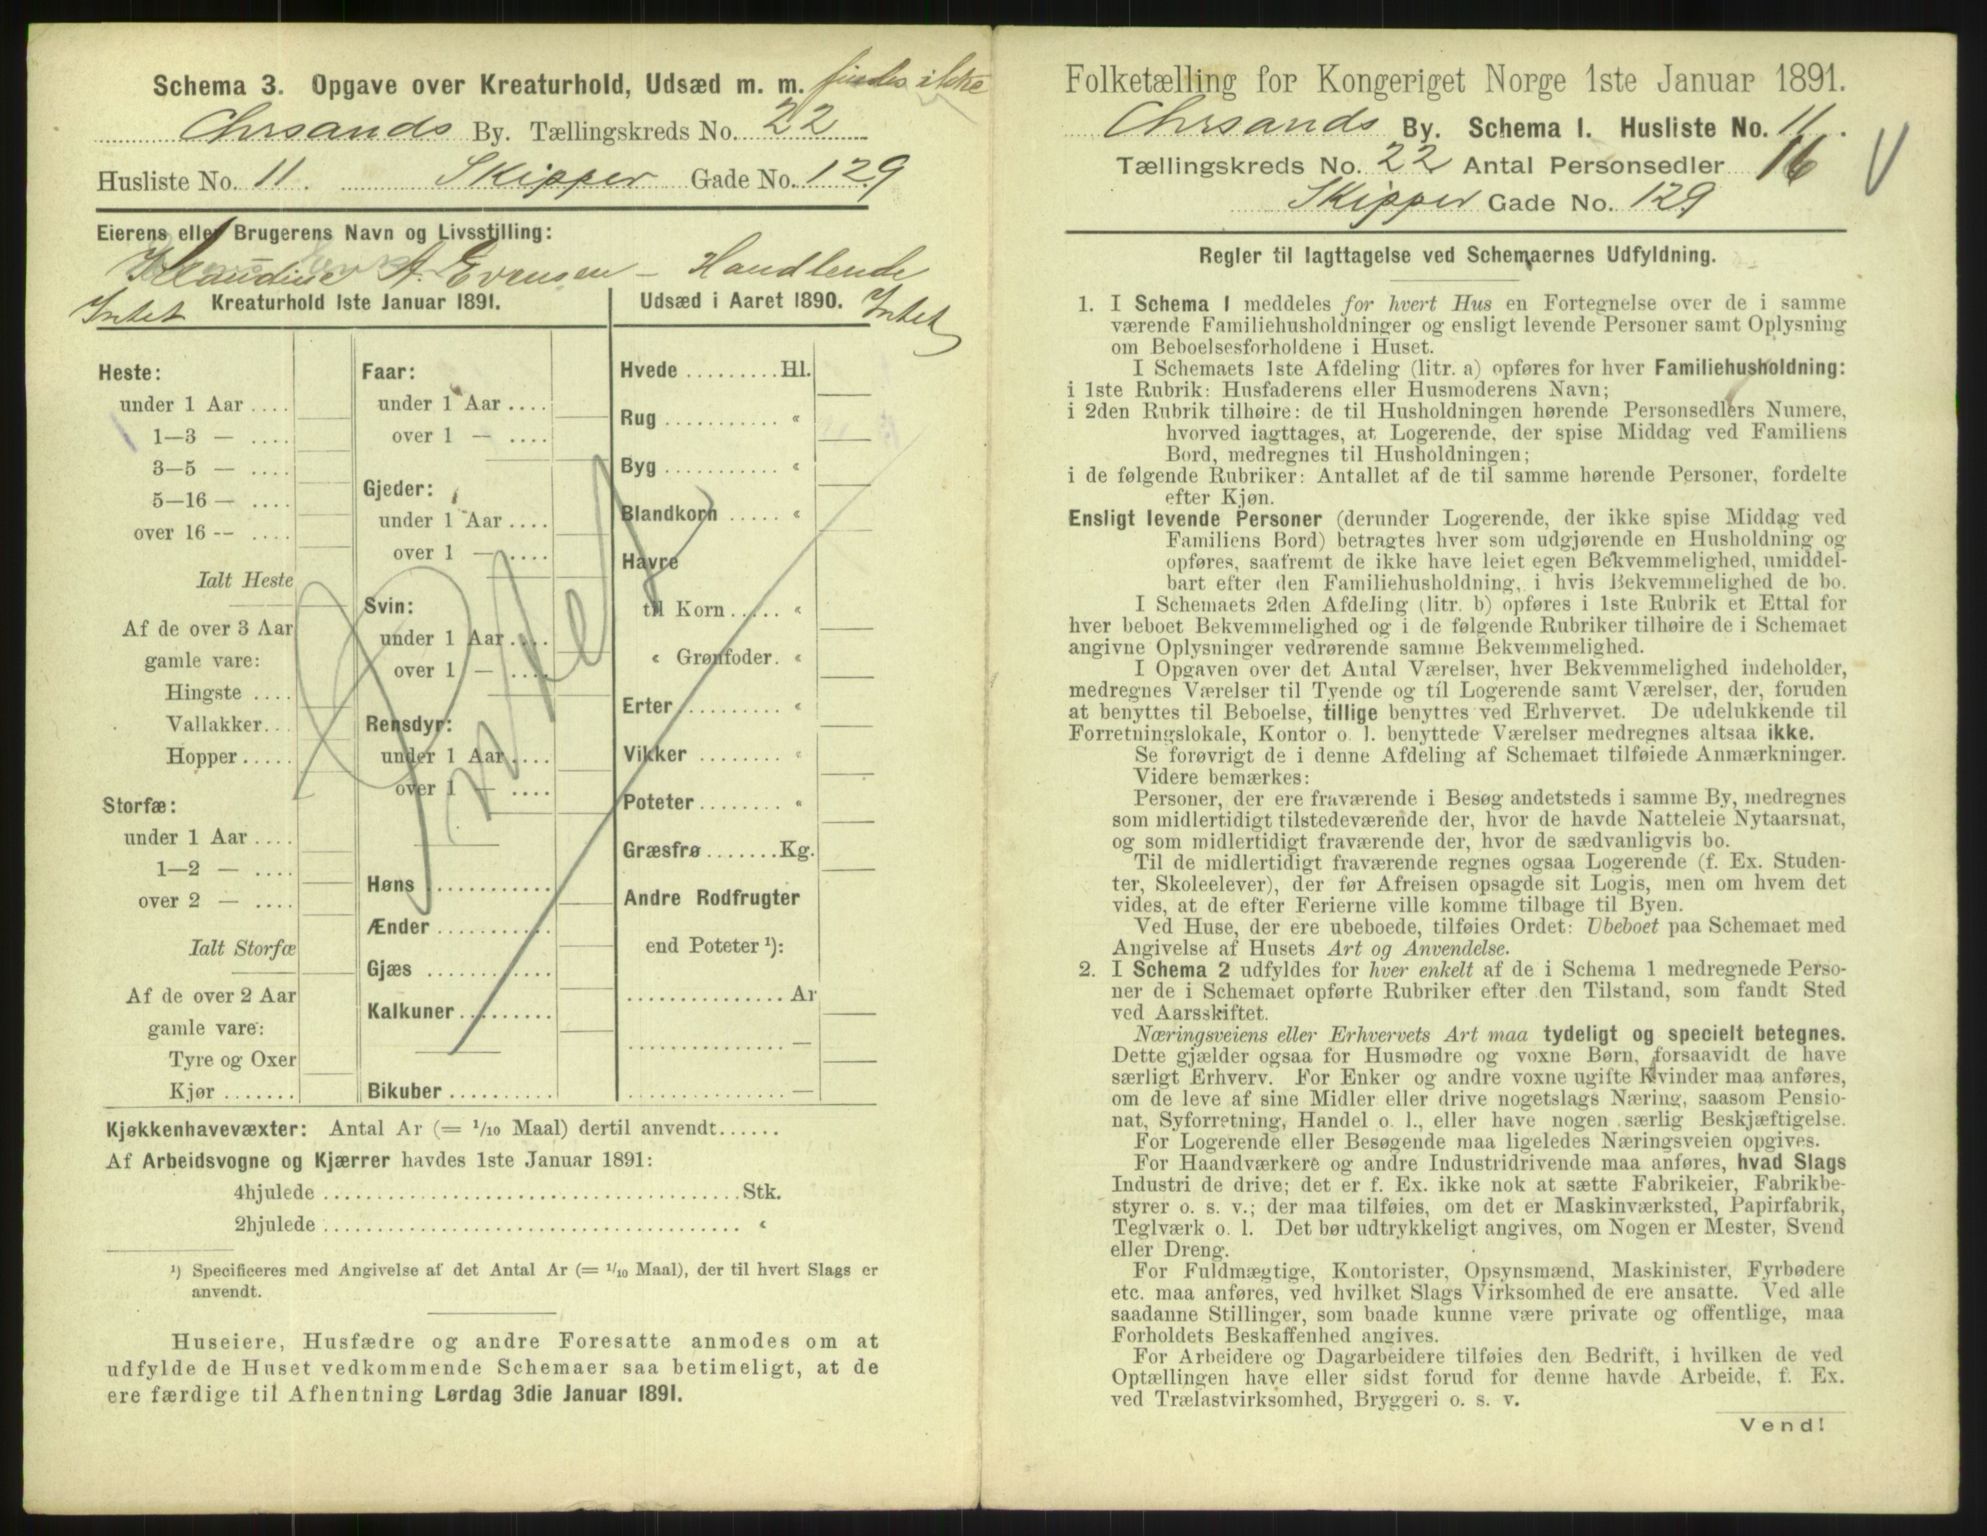 Schema 3. Opgave over Kreaturhold, Udsæd m. m. findes ikke
Chrsands By. Tællingskreds No. 22
Husliste No. 11. Skipper Gade No. 129
Eierens eller Brugerens Navn og Livsstilling:
Klaudius A. Evensen – Handlende
Intet Kreaturhold 1ste Januar 1891. Udsæd i Aaret 1890. Intet
Heste:
under 1 Aar ....
1—3 — ....
3—5 — ....
5—16 — ....
over 16 -- ....
Ialt Heste
Af de over 3 Aar
gamle vare:
Hingste ....
Vallakker...
Hopper.....
Storfæ:
under 1 Aar....
1—2 — ....
over 2 — ....
Ialt Storfæ
Af de over 2 Aar
gamle vare:
Tyre og Oxer
Kjør .......
Faar:
under 1 Aar....
over 1 — ....
Gjeder:
under 1 Aar....
over 1 — ....
Svin:
under 1 Aar....
over 1 — ....
Rensdyr:
under 1 Aar....
over 1 — ....
Høns ...........
Ænder ..........
Gjæs ...........
Kalkuner........
Bikuber.........
Hvede .........Hl.
Rug ........... «
Byg ........... «
Blandkorn ..... «
Havre
til Korn..... «
« Grønfoder. «
Erter ......... «
Vikker ........ «
Poteter........ «
Græsfrø.......Kg.
Andre Rodfrugter
end Poteter ¹):
...............Ar
...............—
...............—
Kjøkkenhavevæxter: Antal Ar (= 1/10 Maal) dertil anvendt......
Af Arbeidsvogne og Kjærrer havdes 1ste Januar 1891:
4hjulede ......................................Stk.
2hjulede ...................................... «
¹) Specificeres med Angivelse af det Antal Ar (= 1/10 Maal), der til hvert Slags er
anvendt.
Huseiere, Husfædre og andre Foresatte anmodes om at
udfylde de Huset vedkommende Schemaer saa betimeligt, at de
ere færdige til Afhentning Lørdag 3die Januar 1891.
Folketælling for Kongeriget Norge 1ste Januar 1891.
Chrsands By. Schema 1. Husliste No. 11.
Tællingskreds No. 22 Antal Personsedler 16
Skipper Gade No. 129
Regler til Iagttagelse ved Schemaernes Udfyldning.
1. I Schema 1 meddeles for hvert Hus en Fortegnelse over de i samme
værende Familiehusholdninger og ensligt levende Personer samt Oplysning
om Beboelsesforholdene i Huset.
I Schemaets 1ste Afdeling (litr. a) opføres for hver Familiehusholdning:
i 1ste Rubrik: Husfaderens eller Husmoderens Navn;
i 2den Rubrik tilhøire: de til Husholdningen hørende Personsedlers Numere,
hvorved iagttages, at Logerende, der spise Middag ved Familiens
Bord, medregnes til Husholdningen;
i de følgende Rubriker: Antallet af de til samme hørende Personer, fordelte
efter Kjøn.
Ensligt levende Personer (derunder Logerende, der ikke spise Middag ved
Familiens Bord) betragtes hver som udgjørende en Husholdning og
opføres, saafremt de ikke have leiet egen Bekvemmelighed, umiddel-
bart efter den Familiehusholdning, i hvis Bekvemmelighed de bo.
I Schemaets 2den Afdeling (litr. b) opføres i 1ste Rubrik et Ettal for
hver beboet Bekvemmelighed og i de følgende Rubriker tilhøire de i Schemaet
angivne Oplysninger vedrørende samme Bekvemmelighed.
I Opgaven over det Antal Værelser, hver Bekvemmelighed indeholder,
medregnes Værelser til Tyende og til Logerende samt Værelser, der, foruden
at benyttes til Beboelse, tillige benyttes ved Erhvervet. De udelukkende til
Forretningslokale, Kontor o. l. benyttede Værelser medregnes altsaa ikke.
Se forøvrigt de i denne Afdeling af Schemaet tilføiede Anmærkninger.
Videre bemærkes:
Personer, der ere fraværende i Besøg andetsteds i samme By, medregnes
som midlertidigt tilstedeværende der, hvor de havde Natteleie Nytaarsnat,
og som midlertidigt fraværende der, hvor de sædvanligvis bo.
Til de midlertidigt fraværende regnes ogsaa Logerende (f. Ex. Studen-
ter, Skoleelever), der før Afreisen opsagde sit Logis, men om hvem det
vides, at de efter Ferierne ville komme tilbage til Byen.
Ved Huse, der ere ubeboede, tilføies Ordet: Ubeboet paa Schemaet med
Angivelse af Husets Art og Anvendelse.
2. I Schema 2 udfyldes for hver enkelt af de i Schema 1 medregnede Perso-
ner de i Schemaet opførte Rubriker efter den Tilstand, som fandt Sted
ved Aarsskiftet.
Næringsveiens eller Erhvervets Art maa tydeligt og specielt betegnes.
Dette gjælder ogsaa for Husmødre og voxne Børn, forsaavidt de have
særligt Erhverv. For Enker og andre voxne ugifte Kvinder maa anføres,
om de leve af sine Midler eller drive nogetslags Næring, saasom Pensio-
nat, Syforretning, Handel o. l., eller have nogen særlig Beskjæftigelse.
For Logerende eller Besøgende maa ligeledes Næringsveien opgives.
For Haandværkere og andre Industridrivende maa anføres, hvad Slags
Industri de drive; det er f. Ex. ikke nok at sætte Fabrikeier, Fabrikbe-
styrer o. s. v.; der maa tilføies, om det er Maskinværksted, Papirfabrik,
Teglværk o. l. Det bør udtrykkeligt angives, om Nogen er Mester, Svend
eller Dreng.
For Fuldmægtige, Kontorister, Opsynsmænd, Maskinister, Fyrbødere
etc. maa anføres, ved hvilket Slags Virksomhed de ere ansatte. Ved alle
saadanne Stillinger, som baade kunne være private og offentlige, maa
Forholdets Beskaffenhed angives.
For Arbeidere og Dagarbeidere tilføies den Bedrift, i hvilken de ved
Optællingen have eller sidst forud for denne havde Arbeide, f. Ex.
ved Trælastvirksomhed, Bryggeri o. s. v.
Vend!